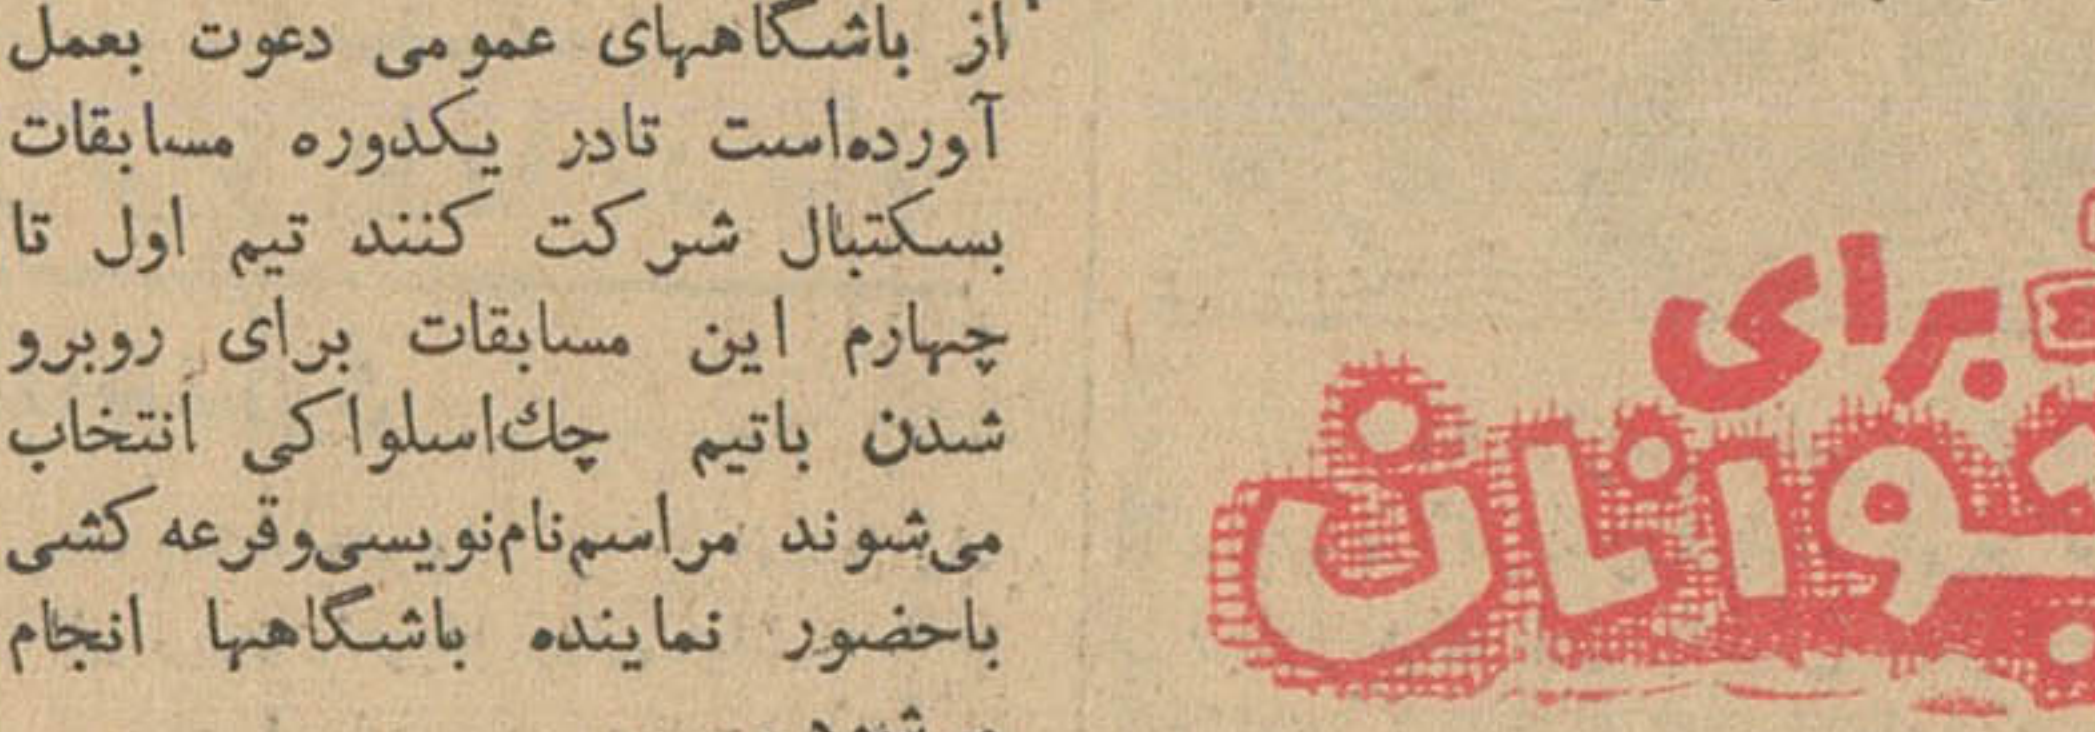 برای
جوانان
از باشگاههای عمومی دعوت بعمل
آورده‌است تادر یکدوره مسابقات
بسکتبال شرکت کنند تیم اول تا
چهارم این مسابقات برای روبرو
شدن باتیم چك‌اسلواکی انتخاب
می‌شوند مراسم‌نام‌نویسی‌وقرعه کشی
باحضور نماینده باشگاهها انجام